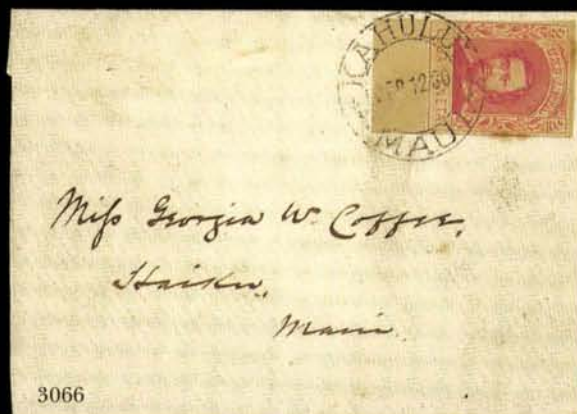 KAHULUI
MAUI
Miss Georgia W. Coffee,
Haiku,
Maui.
3066